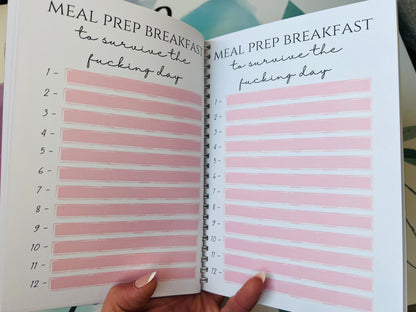 MEAL PREP BREAKFAST
to survive the
fucking day
1 -
2 -
3 -
4 -
5 -
6 -
7 -
8 -
9 -
10 -
11 -
12 -
MEAL PREP BREAKFAST
to survive the
fucking day
1 -
2 -
3 -
4 -
5 -
6 -
7 -
8 -
9 -
10 -
11 -
12 -